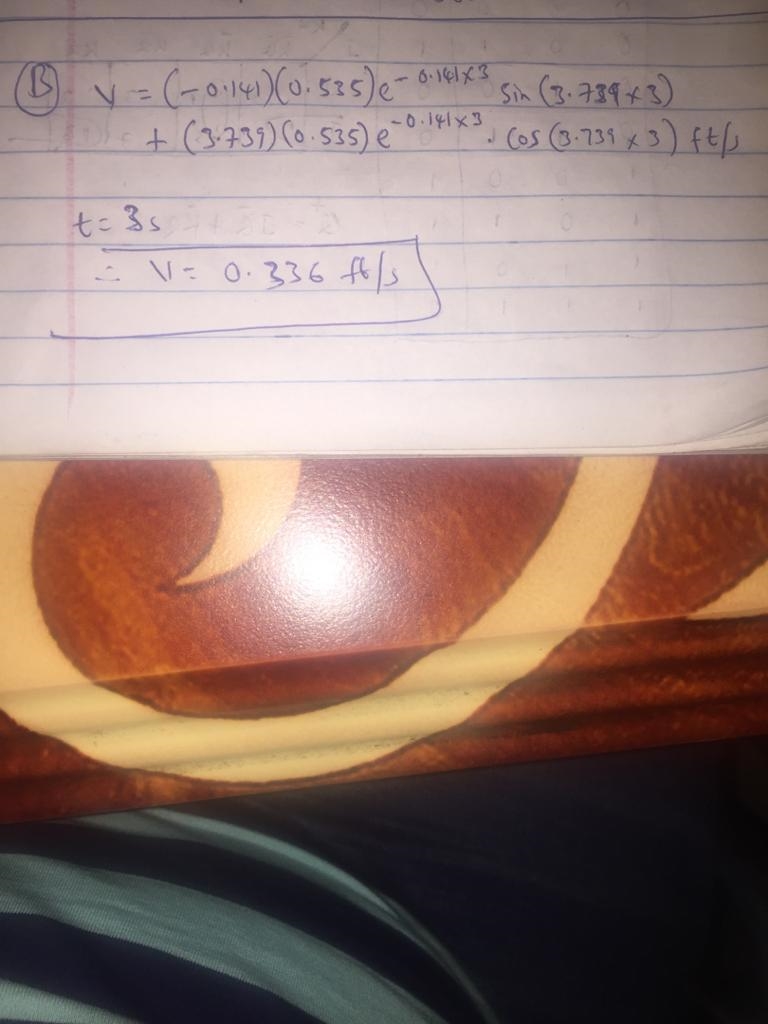 B V = (-0.141)(0.535)e^-0.141×3 sin(3.739×3)
+ (3.739)(0.535)e^-0.141×3 . cos(3.739×3) ft/s
t = 3s
∴ V = 0.336 ft/s